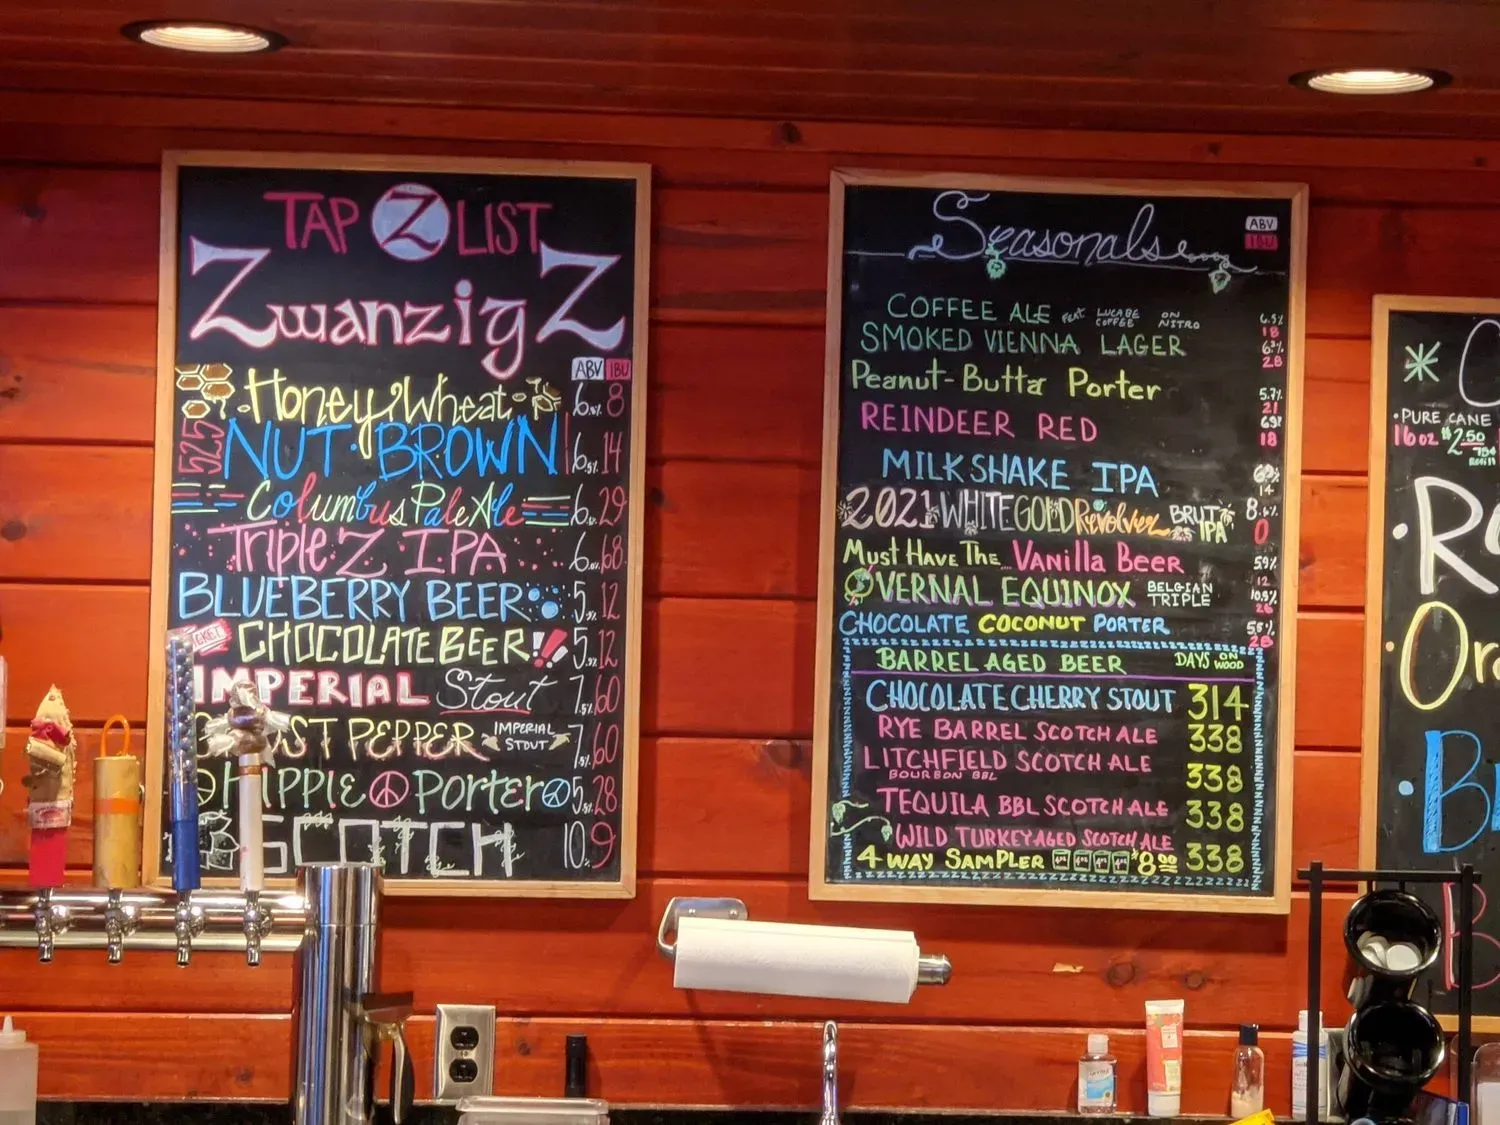 TAP Z LIST
ZwanzigZ
ABV IBU
Honey Wheat 6 8
525 NUT BROWN 6.5% 14
Columbus Pale Ale 6 29
Triple Z IPA 6 68
BLUEBERRY BEER 5 12
CHOCOLATE BEER!! 5 12
IMPERIAL Stout 7.5% 60
PEPPER IMPERIAL STOUT 7.5% 60
HIPPIE Porter 5 28
SCOTCH 10 9
Seasonals
ABV
IBU
COFFEE ALE FEAT. LUCABE COFFEE ON NITRO 6.5%
18
SMOKED VIENNA LAGER
28
Peanut-Butta Porter 5.7%
21
REINDEER RED
18
MILKSHAKE IPA
14
2021 WHITE GOLD Revolver BRUT IPA 8
0
Must Have The... Vanilla Beer 5.9%
12
VERNAL EQUINOX BELGIAN TRIPLE 10.5%
26
CHOCOLATE COCONUT PORTER
28
BARREL AGED BEER DAYS ON WOOD
CHOCOLATE CHERRY STOUT 314
RYE BARREL SCOTCH ALE 338
LITCHFIELD SCOTCH ALE 338
BOURBON BBL
TEQUILA BBL SCOTCH ALE 338
WILD TURKEY AGED SCOTCH ALE 338
4 WAY SAMPLER 4oz 4oz 4oz 4oz $8.00
• PURE CANE
16oz $2.50